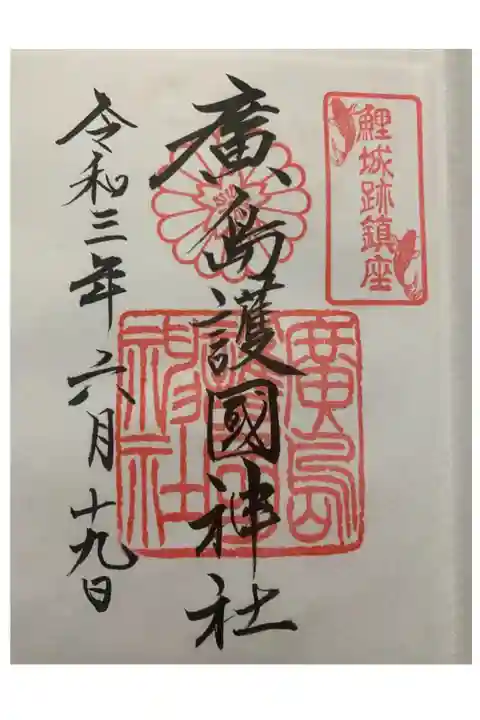 鯉城跡鎮座
廣島護國神社
廣島護國神社
令和三年六月十九日